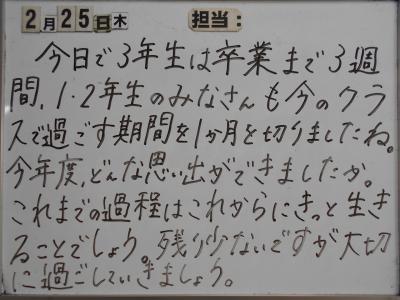 2月25日木 担当:
今日で3年生は卒業まで3週
間、1・2年生のみなさんも今のクラ
スで過ごす期間を1か月を切りましたね。
今年度、どんな思い出ができましたか。
これまでの過程はこれからにきっと生き
ることでしょう。残り少ないですが大切
に過ごしていきましょう。